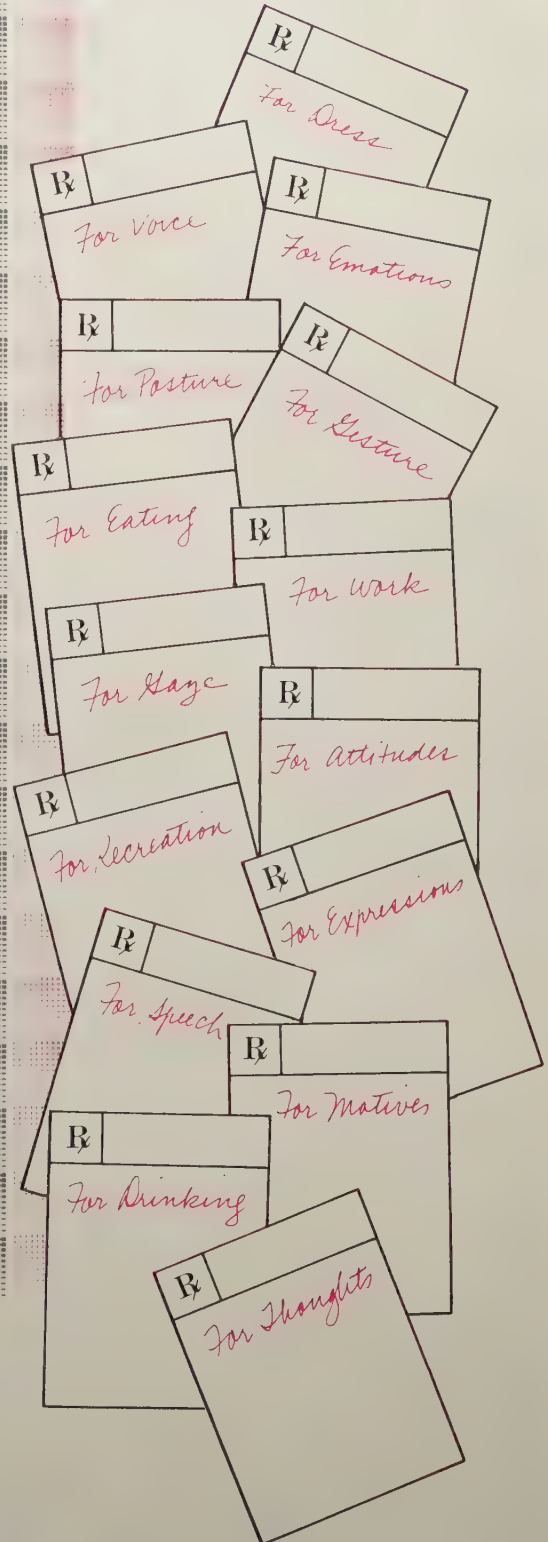 ℞
For Dress
℞
For Voice
℞
For Emotions
℞
For Posture
℞
For Gesture
℞
For Eating
℞
For Work
℞
For Gaze
℞
For Attitudes
℞
For Recreation
℞
For Expressions
℞
For Speech
℞
For Motives
℞
For Drinking
℞
For Thoughts